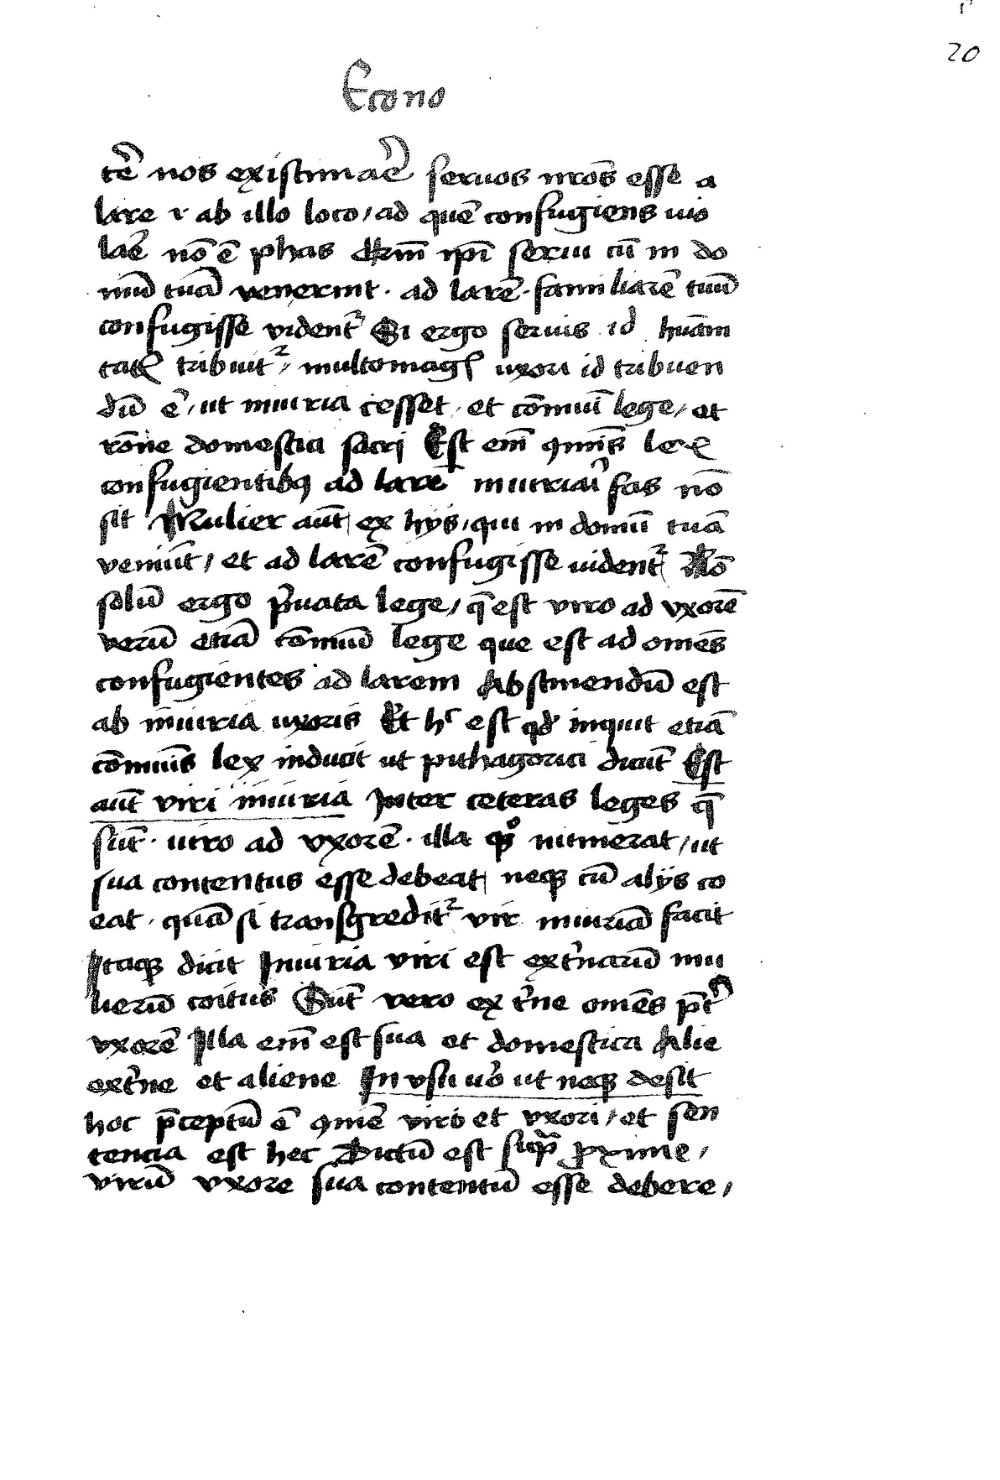 20
Econo
tē nos existimaē seruos nr̄os esse a
lare ⁊ ab illo loco / ad quē confugiens uio
laē nō ē phas ip̄i serui cū in do
mū tuā venerint · ad larē · familiarē tuū
confugisse vident᷑ Si ergo seruis id huāni
tatꝭ tribuit᷑ / multomagꝭ uxori id tribuen
dū ē / ut iniuria cesset · et cōmuī lege / et
rōne domestici sacri Est em̄ lex
confugientibꝯ ad larē iniuriaī fas nō
sit Mulier aūt ex hys / qui in domū tuā
veniūt / et ad larē confugisse uident᷑ Nō
solū ergo p̱uata lege / q̄ est viro ad vxorē
verū etiā cōmuī lege que est ad omēs
confugientes ad larem Abstinendū est
ab iniuria uxoris Et hͨ est qd̓ inquit etiā
cōmuīs lex inducit ut pithagorici dicūt Est
aūt viri iniuria Inter ceteras leges q̄
sūt · uiro ad vxorē · illa numerat / ut
sua contentus esse debeat neqꝫ cū alijs co
eat · quā si transgredit᷑ vir iniuriā facit
Itaqꝫ dicit Iniuria viri est ext̓narū mu
lierū coitus Sūt vero ex t̓ne omēs p̄t̓
vxorē Illa em̄ est sua et domestica Alie
ext̓ne et aliene In vsu uo̓ ut neqꝫ desit
hoc p̄ceptū ē viro et vxori / et sen
tencia est hec Dictū est sup̄ ꝓxime /
virū vxore sua contentū esse debere /